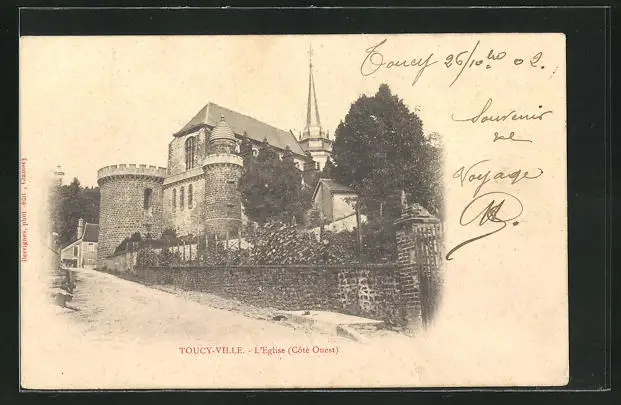 Toucy 26/10bre 02.
Souvenir
de
Voyage
Desvignes, phot. édit., Clamecy
TOUCY-VILLE. - L'Eglise (Côté Ouest)